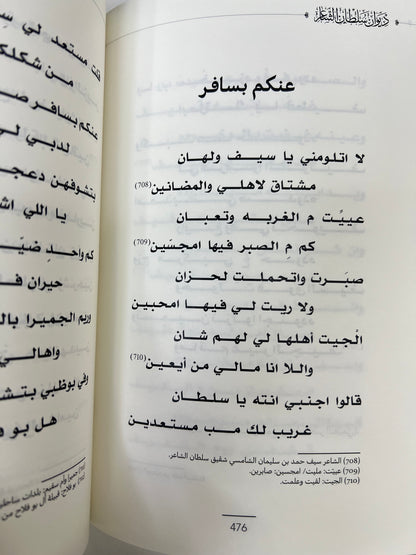 ديوان سلطان الشاعر
عنكم بسافر
لا اتلومني يا سيف ولهان
مشتاق لاهلي والمضانين(708)
عييت م الغربه وتعبان
كم م الصبر فيها امجسين(709)
صبرت واتحملت لحزان
ولا ريت لي فيها امحبين
الجيت أهلها لي لهم شان
واللا انا مالي من أيعين(710)
قالوا اجنبي انته يا سلطان
غريب لك مب مستعدين
(708) الشاعر سيف حمد بن سليمان الشامسي شقيق سلطان الشاعر.
(709) عييت: مليت/ امجسين: صابرين.
(710) الجيت: لقيت وعلمت.
476
قلت مستعد لي
من شكلك
عنكم بسافر
لدبي لي
بتشوفهن
يا اللي
كم واحد
حيران
وريم الجميرا
واهالي
وفي بوظبي
هل بو